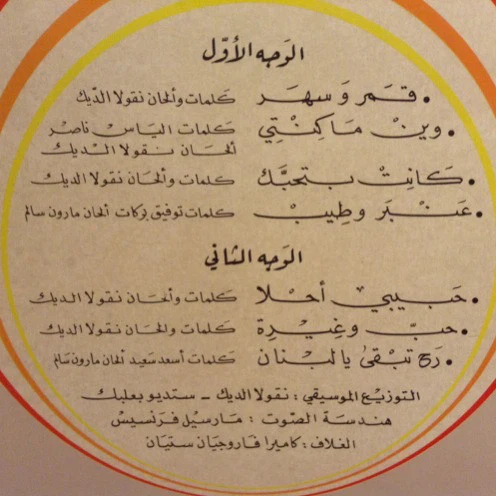 الوَجه الأوّل
• قَمَر وَ سهَر كلمات وألحان نقولا الدّيك
• وينْ مَا كِنْتِي كلمات الياس ناصر
ألحان نقولا الديك
• كَانِتْ بتحبَّك كلمات وألحان نقولا الديك
• عَنْبَر وطِيبْ كلمات توفيق بركات ألحان مارون سالم
الوَجه الثاني
• حَبيبي أحْلا كلمات وألحان نقولا الديك
• حبّ وغِيْرة كلمات والحان نقولا الديك
• رَح تبْقىٰ يا لبْنان كلمات أسعد سَعيد ألحان مارون سالم
التوزيع الموسيقي : نقولا الديك - ستديو بعلبك
هندسة الصّوت : مَارسيل فرنسيسْ
الغلاف : كاميرا فاروجيان ستيان